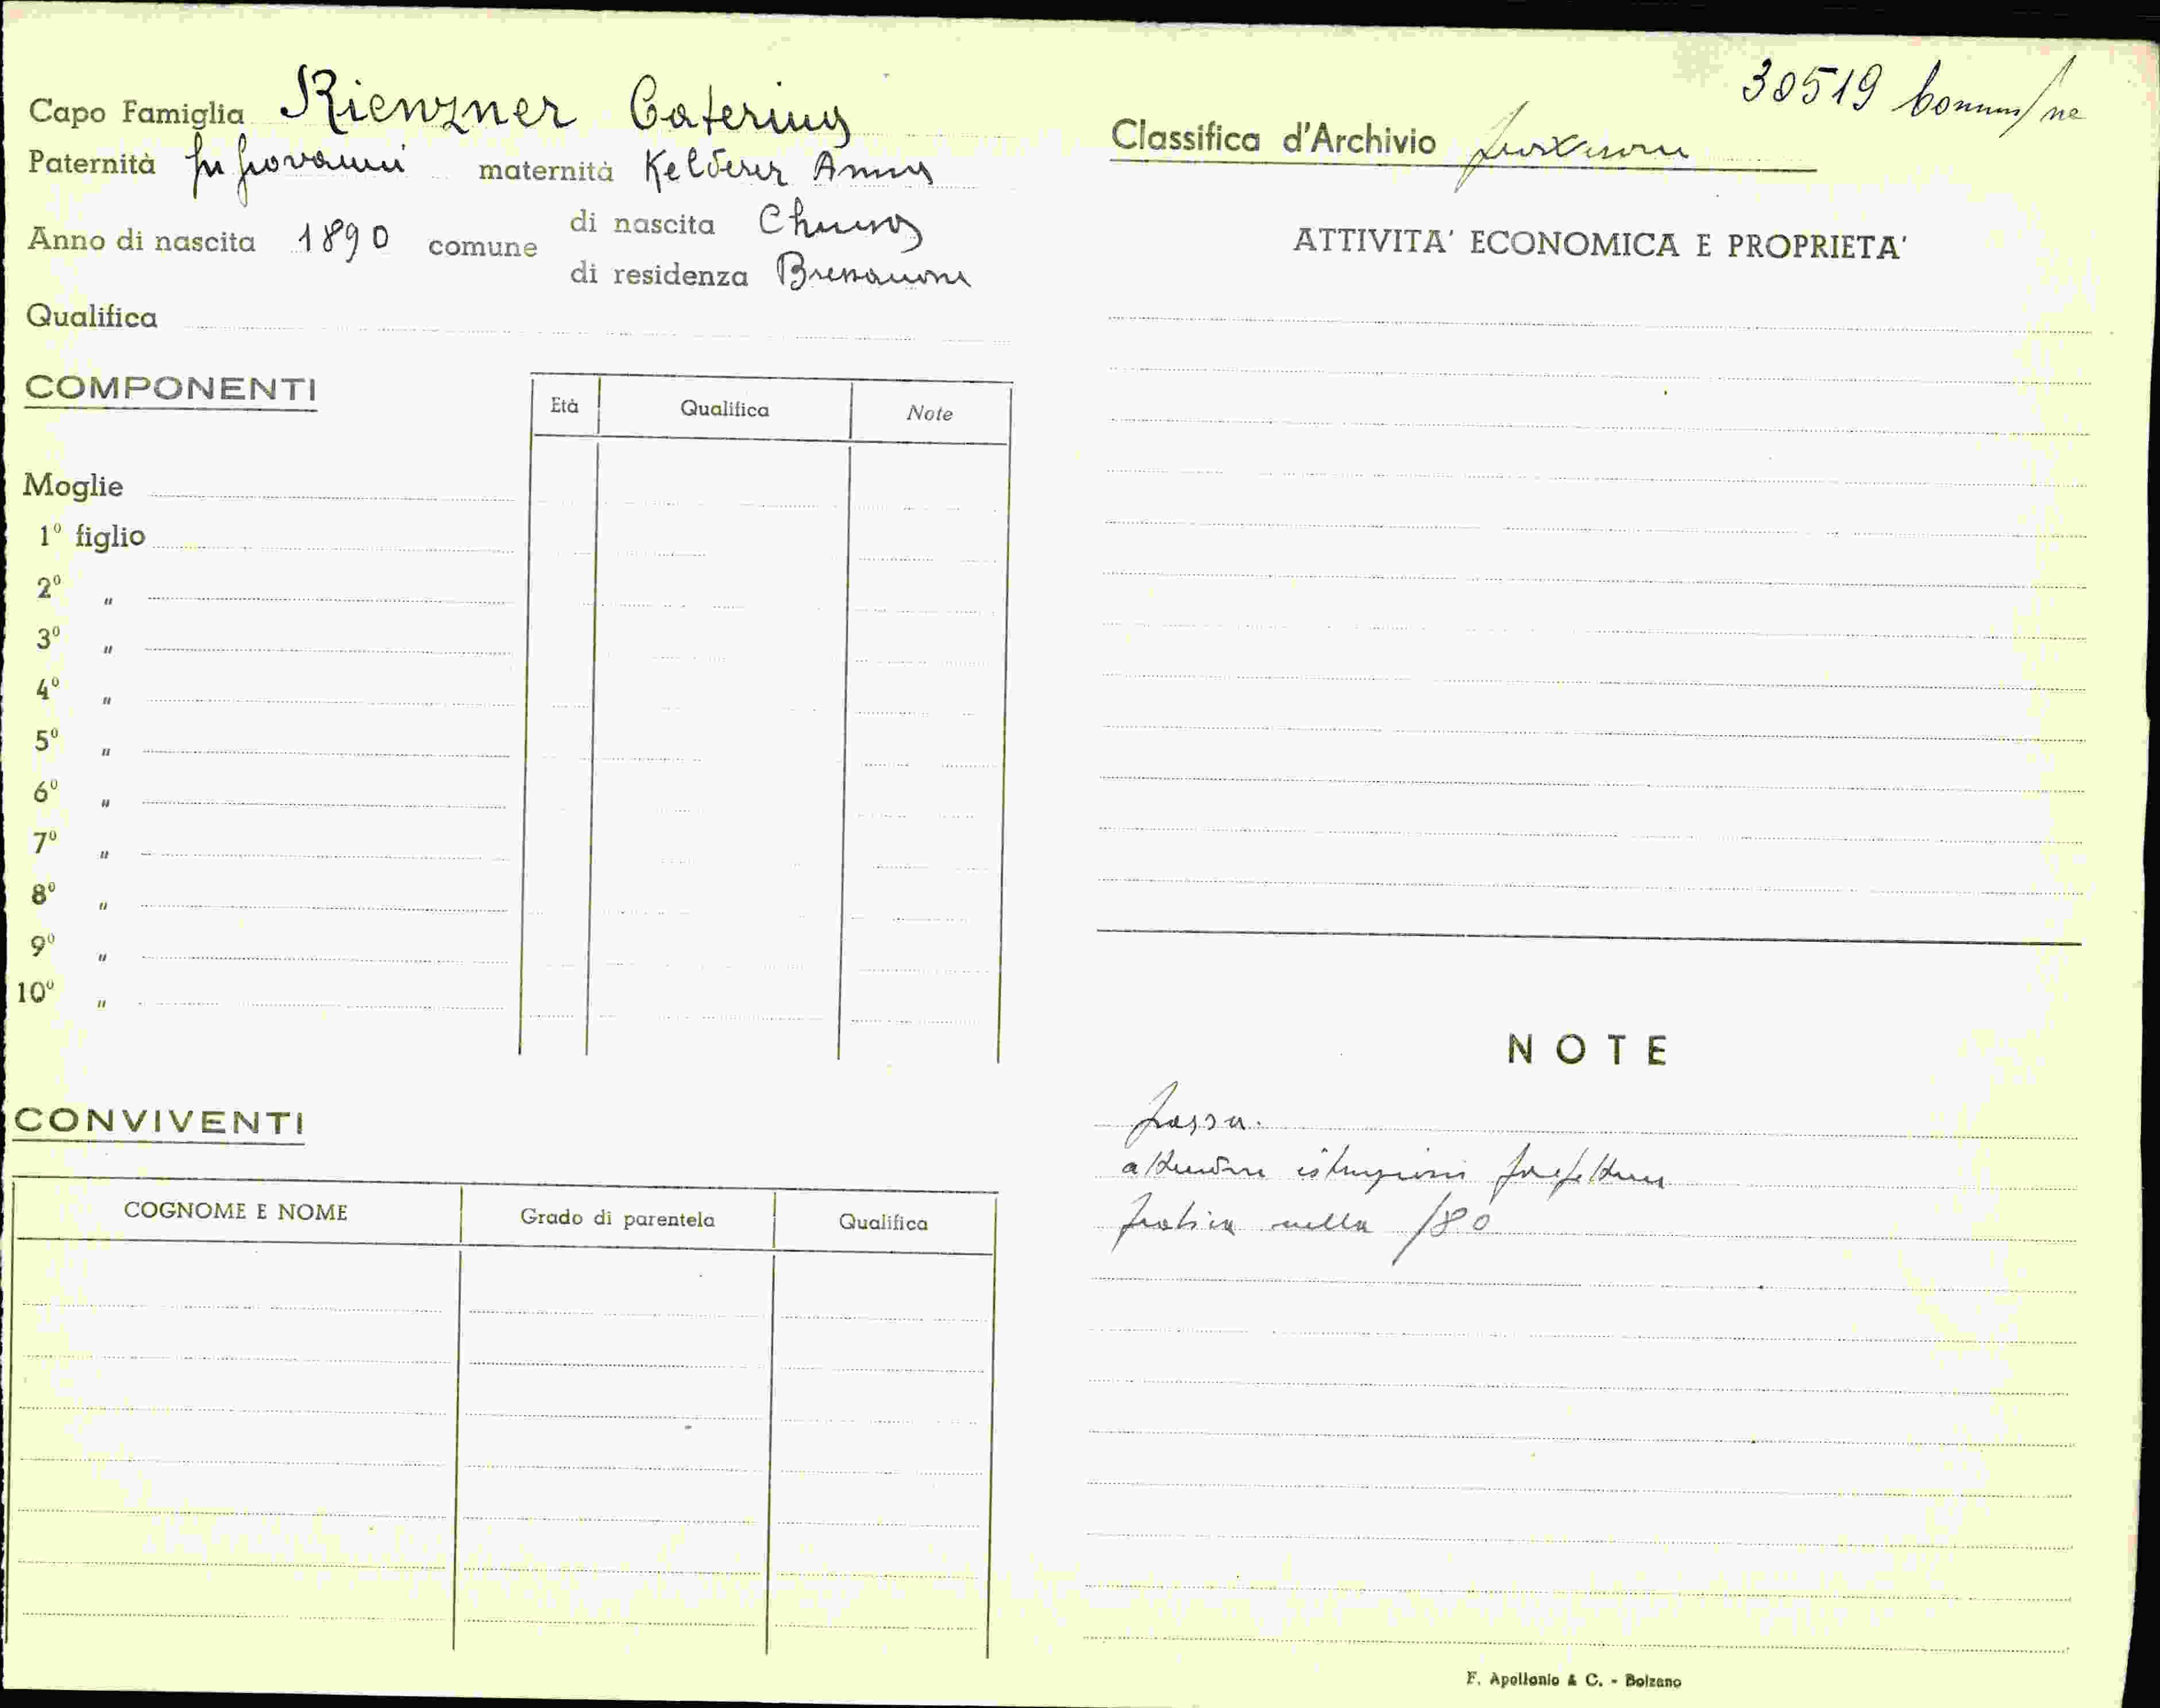 Capo Famiglia Rienzner Caterina
Paternità fu Giovanni maternità Kelderer Anna
Anno di nascita 1890 comune di nascita Chiusa
di residenza Bressanone
Qualifica
COMPONENTI
Età Qualifica Note
Moglie
1º figlio
2º "
3º "
4º "
5º "
6º "
7º "
8º "
9º "
10º "
CONVIVENTI
COGNOME E NOME Grado di parentela Qualifica
30519
Classifica d'Archivio
ATTIVITA' ECONOMICA E PROPRIETA'
NOTE
attendere istruzioni prefettura
pratica nella /80
F. Apollonio & C. - Bolzano